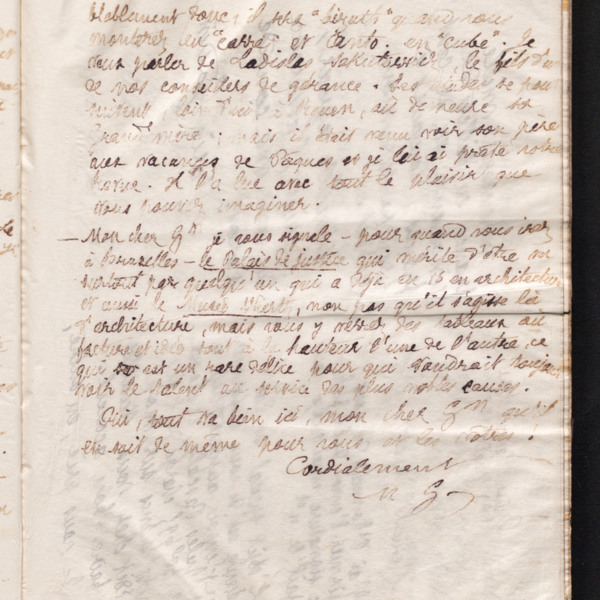 blablement donc; il sera "bizuth" quand vous
monterez en "carré" et Canto en "cube". Je
veux parler de Ladislas le fils d'un
de nos conseillers de gérance. Ses études se pour
suivent loin d'ici à Rouen, où demeure sa
grand'mère; mais il était venu voir son père
aux vacances de Pâques et je lui ai prêté notre
Revue. Il l'a lue avec tout le plaisir que
vous pouvez imaginer.
— Mon cher Gn je vous signale - pour quand vous irez
à Bruxelles - le Palais de Justice qui mérite d'être vu
surtout par quelqu'un qui a déjà eu 15 en architecture
et aussi le Musée Wiertz, non pas qu'il s'agisse là
d'architecture, mais vous y verrez des tableaux où
facture et idée sont à la hauteur l'une de l'autre, ce
qui est un rare délice pour qui voudrait toujours
voir le talent au service des plus nobles causes.
Oui, tout va bien ici, mon cher Gn qu'il
en soit de même pour vous et les vôtres!
Cordialement